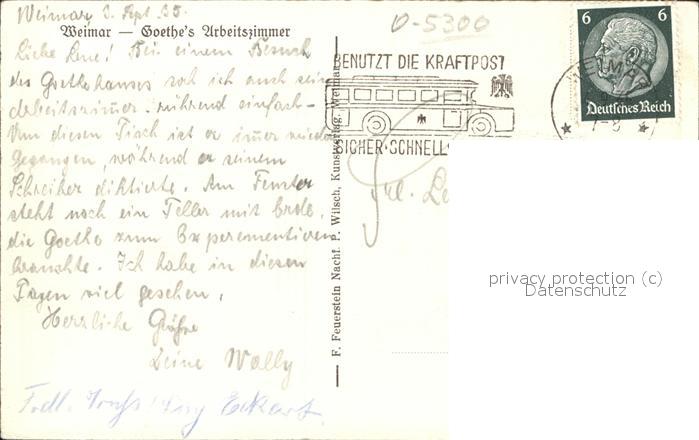 Weimar, 3. Sept. 35.
Weimar — Goethe's Arbeitszimmer
Liebe Lene! Bei einem Besuch
des Goethehauses sah ich auch sein
Arbeitszimmer. rührend einfach –
Um diesen Tisch ist er immer wieder
gegangen, während er seinem
Schreiber diktierte. Am Fenster
steht noch ein Teller mit Erde,
die Goethe zum Experementieren
brauchte. Ich habe in diesen
Tagen viel gesehen.
Herzliche Grüße
Deine Wally
Eckart
F. Feuerstein Nachf. P. Wilsch, Kunstverlag, Weimar
D-5300
BENUTZT DIE KRAFTPOST
SICHER·SCHNELL
WEIMAR
6 6
Deutsches Reich
Frl. Le
privacy protection (c)
Datenschutz